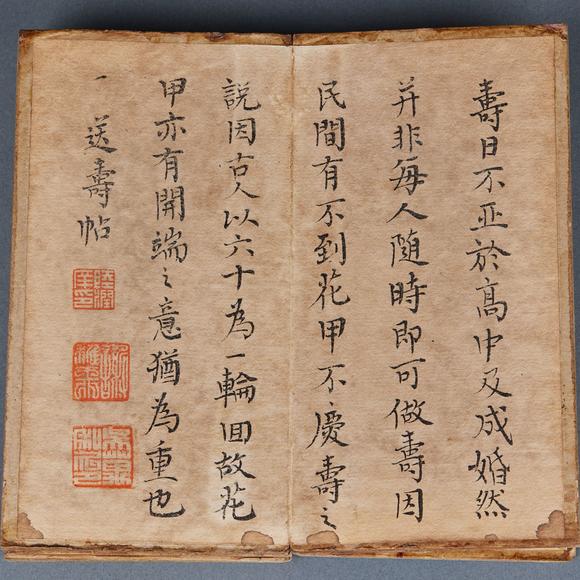 壽日不亞於高中及成婚然
并非每人隨時即可做壽因
民間有不到花甲不慶壽之
說因古人以六十為一輪回故花
甲亦有開端之意猶為重也
一送壽帖